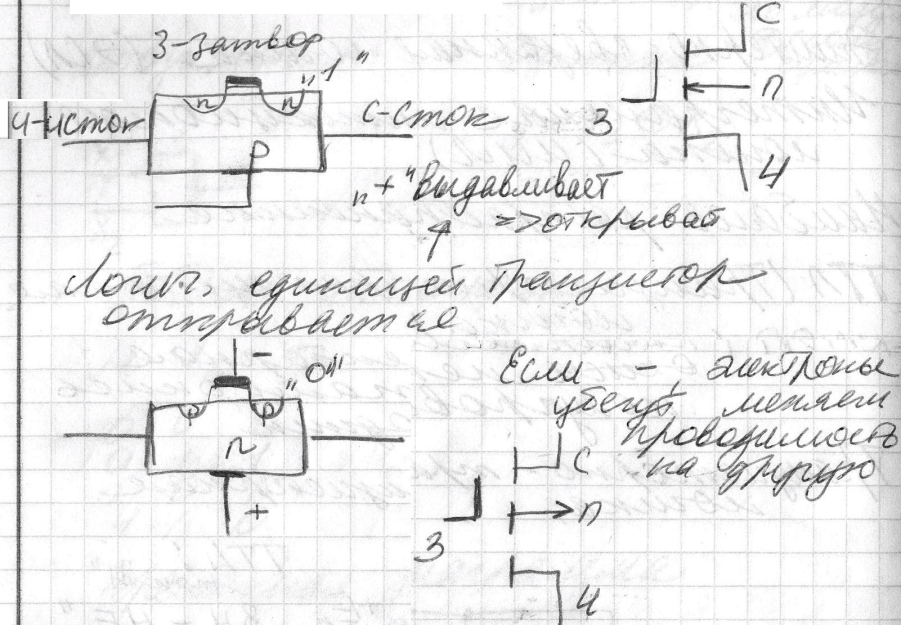 З-затвор
"1"
И-исток
С-сток
n
n
p
С
П
З
И
n + "Выдавливает
=> открывай
Логич. единицей транзистор
открывается
-
"0"
p
p
n
+
Если -, электроны
убегут меняем
проводимость
на другую
С
П
З
И